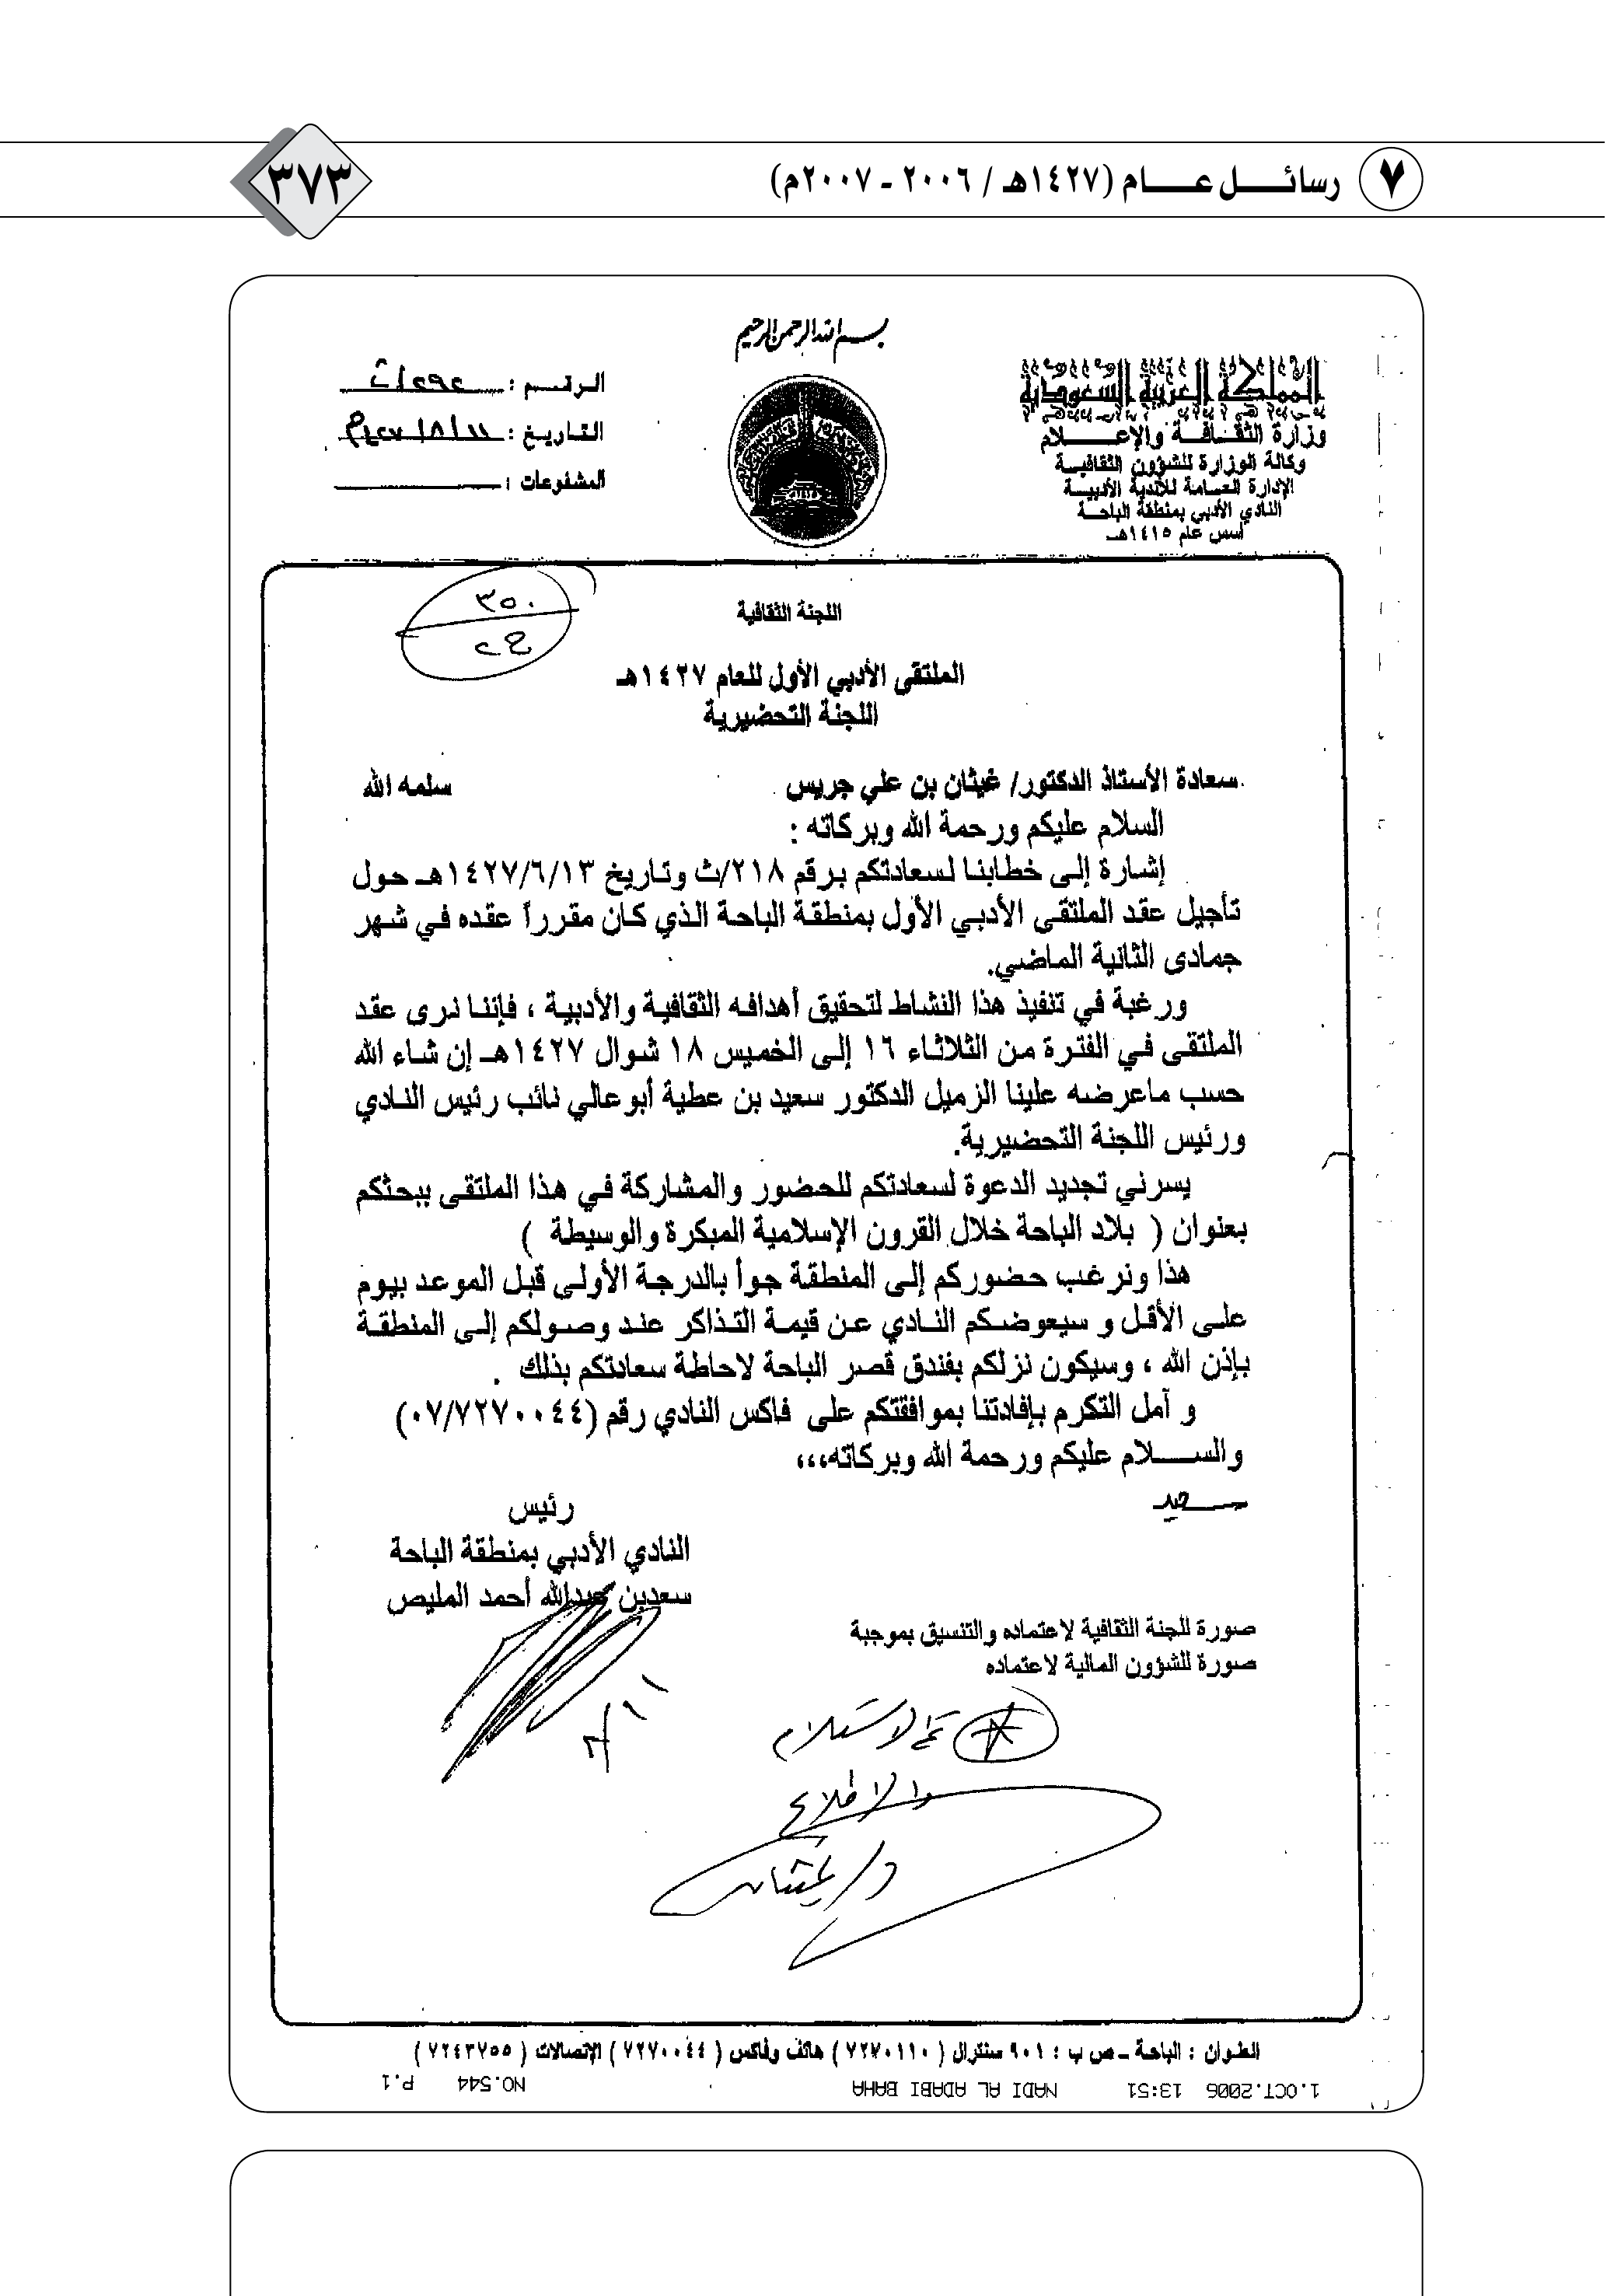 ٧ رسائل عام (١٤٢٧هـ / ٢٠٠٦ - ٢٠٠٧م)
٣٧٣
بسم الله الرحمن الرحيم
المملكة العربية السعودية
وزارة الثقافة والإعلام
وكالة الوزارة للشؤون الثقافية
الإدارة العامة للأندية الأدبية
النادي الأدبي بمنطقة الباحة
أسس عام ١٤١٥هـ
الرقم : ٢٩٢/ث
التاريخ : ١١/٨/٢٧
المشفوعات :
٣٥٠
اللجنة الثقافية
الملتقى الأدبي الأول للعام ١٤٢٧هـ
اللجنة التحضيرية
سعادة الأستاذ الدكتور/ غيثان بن علي جريس سلمه الله
السلام عليكم ورحمة الله وبركاته :
إشارة إلى خطابنا لسعادتكم برقم ٢١٨/ث وتاريخ ١٤٢٧/٦/١٣هـ حول
تأجيل عقد الملتقى الأدبي الأول بمنطقة الباحة الذي كان مقرراً عقده في شهر
جمادى الثانية الماضي.
ورغبة في تنفيذ هذا النشاط لتحقيق أهدافه الثقافية والأدبية ، فإننا نرى عقد
الملتقى في الفترة من الثلاثاء ١٦ إلى الخميس ١٨ شوال ١٤٢٧هـ إن شاء الله
حسب ماعرضه علينا الزميل الدكتور سعيد بن عطية أبوعالي نائب رئيس النادي
ورئيس اللجنة التحضيرية.
يسرني تجديد الدعوة لسعادتكم للحضور والمشاركة في هذا الملتقى ببحثكم
بعنوان ( بلاد الباحة خلال القرون الإسلامية المبكرة والوسيطة )
هذا ونرغب حضوركم إلى المنطقة جواً بالدرجة الأولى قبل الموعد بيوم
على الأقل و سيعوضكم النادي عن قيمة التذاكر عند وصولكم إلى المنطقة
بإذن الله ، وسيكون نزلكم بفندق قصر الباحة لاحاطة سعادتكم بذلك .
و آمل التكرم بإفادتنا بموافقتكم على فاكس النادي رقم (٠٧/٧٢٧٠٠٤٤)
والسلام عليكم ورحمة الله وبركاته،،،
رئيس
النادي الأدبي بمنطقة الباحة
سعدبن عبدالله أحمد المليص
صورة للجنة الثقافية لاعتماده والتنسيق بموجبة
صورة للشؤون المالية لاعتماده
تم الاستلام
والاطلاع
د/ غيثان
العنوان : الباحة - ص ب : ٩٠١ سنترال ( ٧٢٧٠١١٠ ) هاتف وفاكس ( ٧٢٧٠٠٤٤ ) الإتصالات ( ٧٢٤٣٧٥٥ )
1.OCT.2006 13:51 NADI AL ADABI BAHA NO.544 P.1